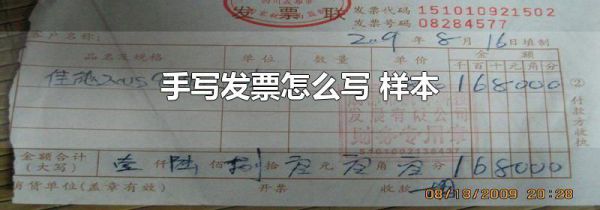 发票联
发票代码 151010921502
发票号码 08284577
客户名称:
2009年8月16日填制
品名及规格 单位 数量 单价 金额
千百十元角分
佳能
168000
手写发票怎么写 样本
②付款方收执
发票专用章
金额合计(大写) 壹仟陆佰捌拾零元零角零分 168000
销货单位(盖章有效) 开票 收款
08/18/2009 20:28